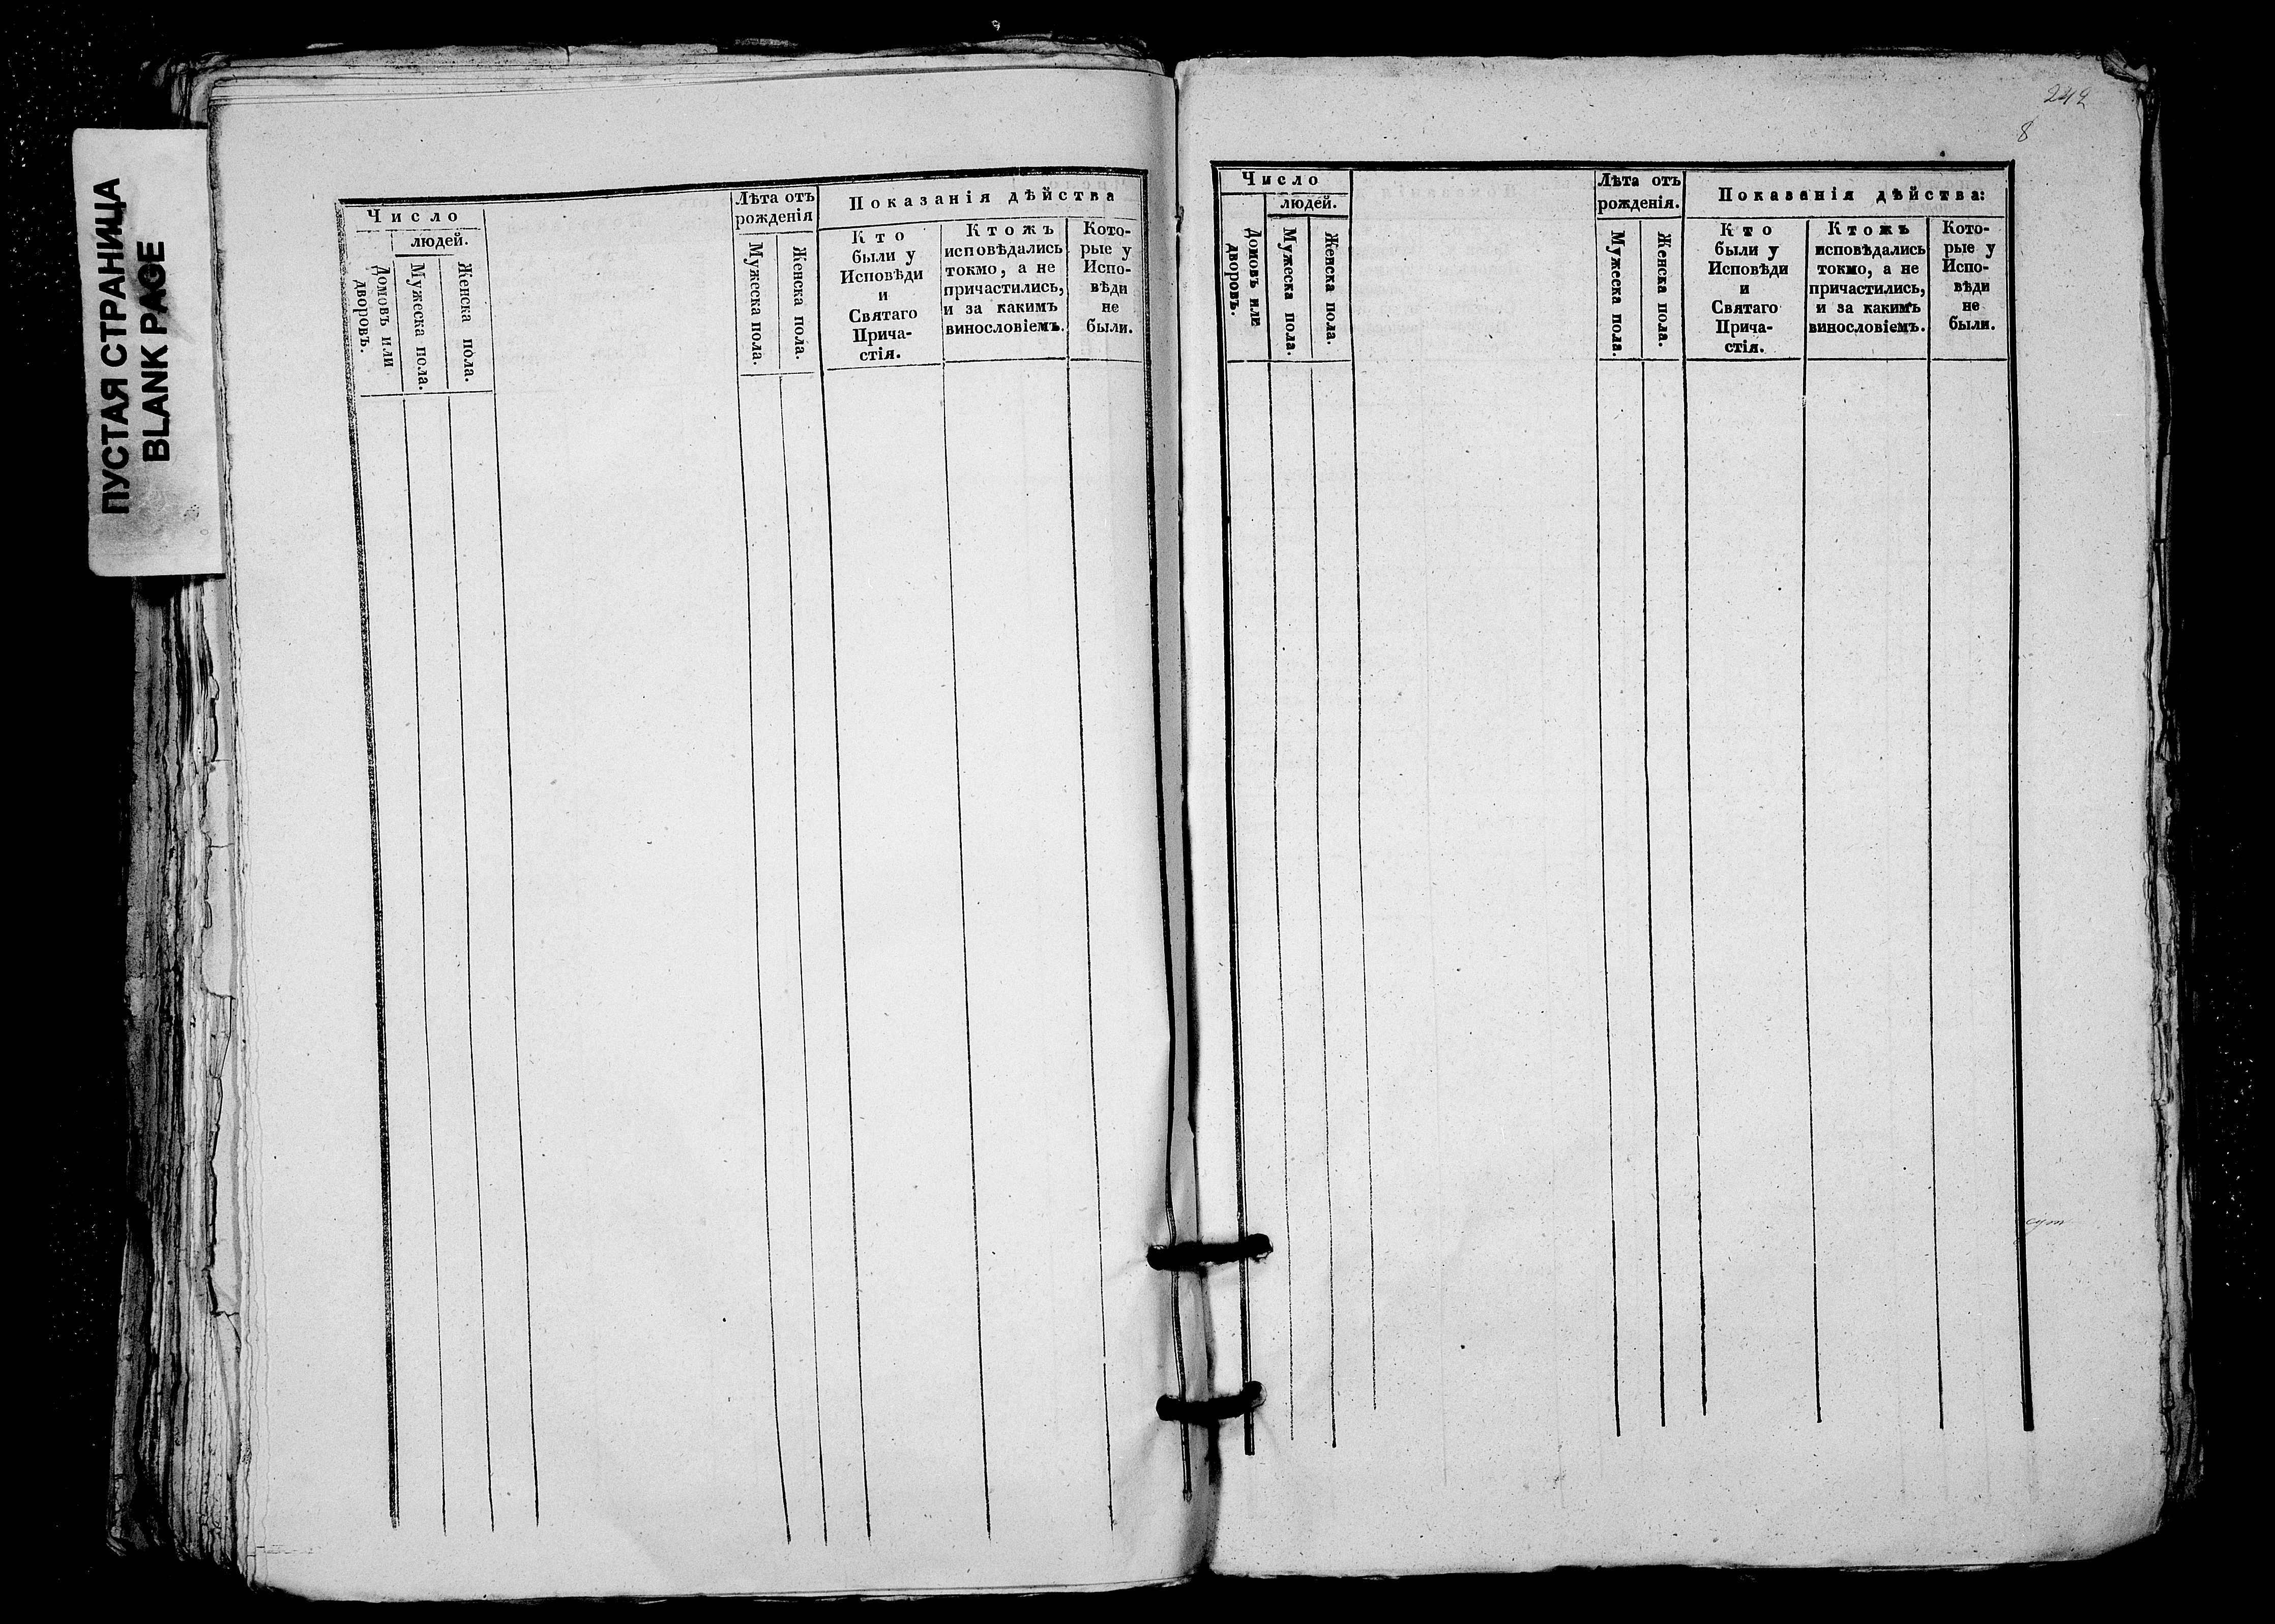 ПУСТАЯ СТРАНИЦА
BLANK PAGE
Число
людей.
Домовъ или
дворовъ.
Мужеска пола.
Женска пола.
Лѣта отъ
рожденія
Мужеска пола.
Женска пола.
Показанія дѣйства
Кто
были у
Исповѣди
и
Святаго
Прича-
стія.
Ктожъ
исповѣдались
токмо, а не
причастились,
и за какимъ
винословіемъ.
Кото-
рые у
Испо-
вѣди
не
были.
242
8
Число
людей.
Домовъ или
дворовъ.
Мужеска пола.
Женска пола.
Лѣта отъ
рожденія.
Мужеска пола.
Женска пола.
Показанія дѣйства:
Кто
были у
Исповѣди
и
Святаго
Прича-
стія.
Ктожъ
исповѣдались
токмо, а не
причастились,
и за какимъ
винословіемъ.
Кото-
рые у
Испо-
вѣди
не
были.